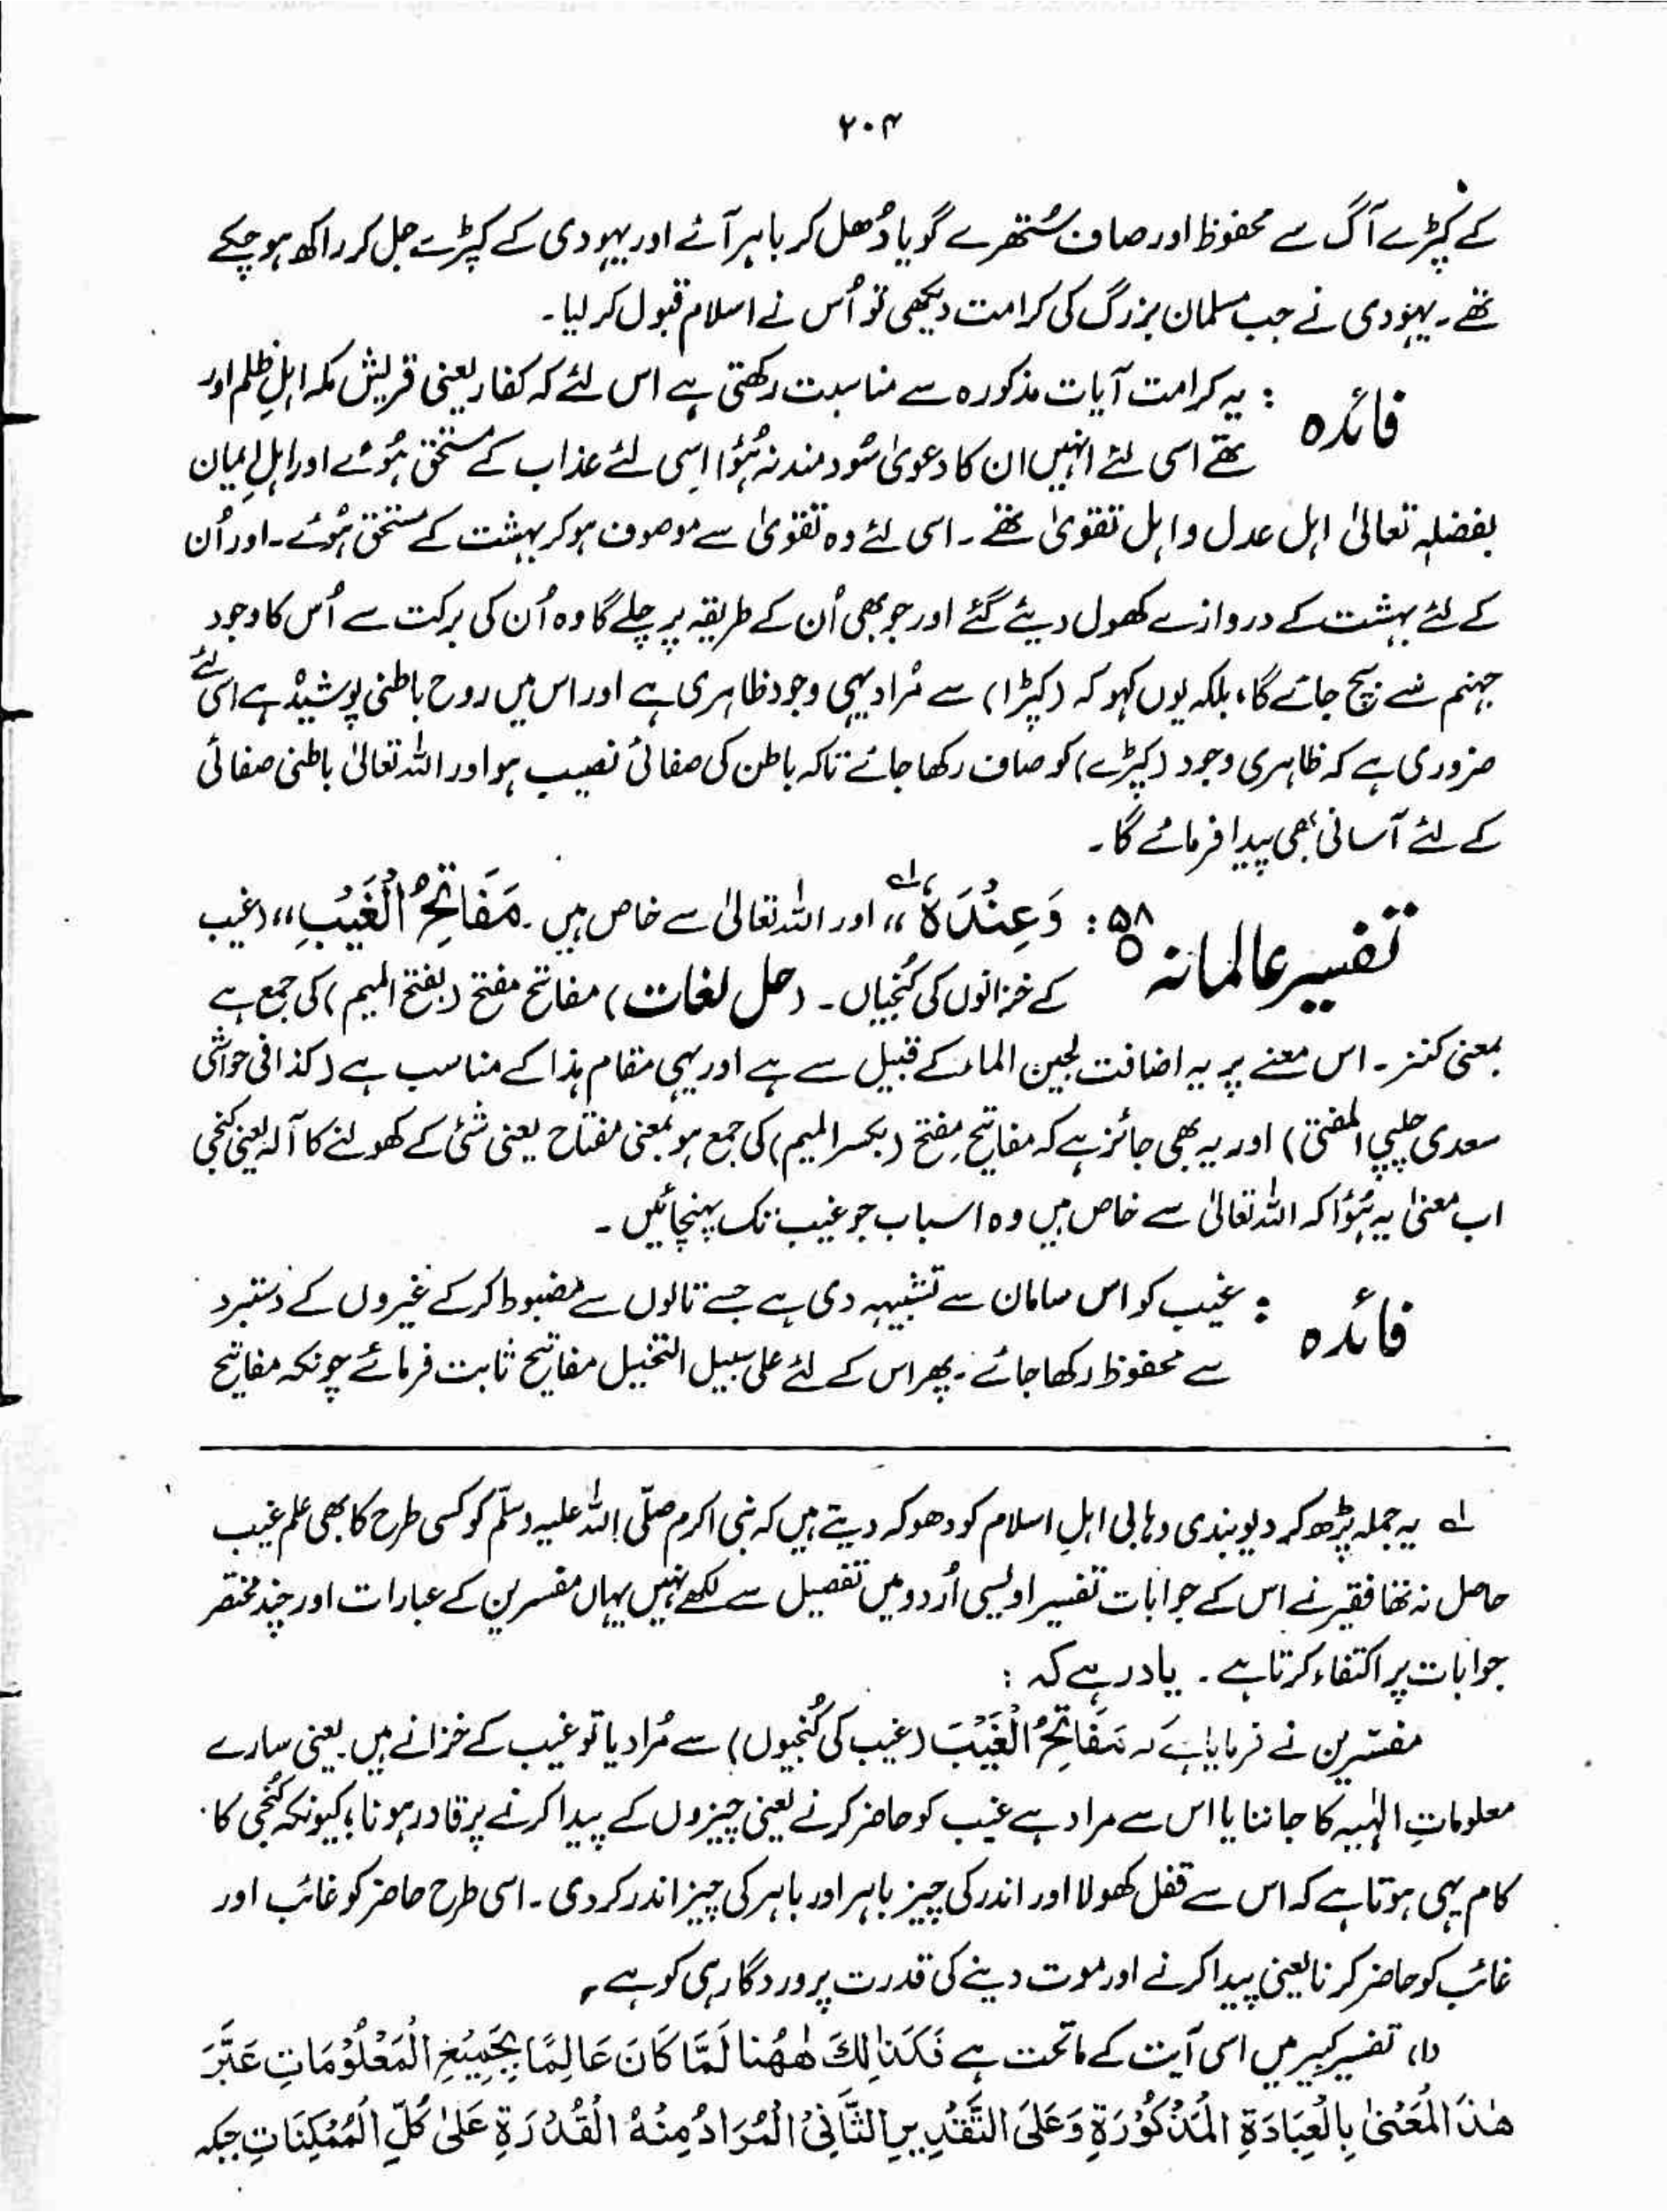 ۲۰۴
کے کپڑے آگ سے محفوظ اور صاف ستھرے گویا دُھل کر باہر آئے اور یہودی کے کپڑے جل کر راکھ ہو چکے
تھے۔ یہودی نے جب مسلمان بزرگ کی کرامت دیکھی تو اُس نے اسلام قبول کر لیا۔
فائدہ : یہ کرامت آیات مذکورہ سے مناسبت رکھتی ہے اس لئے کہ کفار یعنی قریش مکہ اہلِ ظلم اور
تھے اسی لئے انہیں ان کا دعویٰ سُود مند نہ ہُؤا اسی لئے عذاب کے مستحق ہُوئے اور اہلِ ایمان
بفضلہٖ تعالیٰ اہل عدل و اہل تقویٰ تھے۔ اسی لئے وہ تقویٰ سے موصوف ہو کر بہشت کے مستحق ہُوئے۔ اور اُن
کے لئے بہشت کے دروازے کھول دیئے گئے اور جو بھی اُن کے طریقہ پر چلے گا وہ اُن کی برکت سے اُس کا وجود
جہنم سے بچ جائے گا، بلکہ یوں کہو کہ (کپڑا) سے مُراد یہی وجود ظاہری ہے اور اس میں روح باطنی پوشیدہ ہے اسی لئے
ضروری ہے کہ ظاہری وجود (کپڑے) کو صاف رکھا جائے تاکہ باطن کی صفائی نصیب ہو اور اللہ تعالیٰ باطنی صفائی
کے لئے آسانی بھی پیدا فرمائے گا۔
تفسیر عالمانہ ۵۸ : وَعِنْدَہٗ لے ،، اور اللہ تعالیٰ سے خاص ہیں۔ مَفَاتِحُ الْغَیْبِ ،، (غیب
کے خزانوں کی کُنجیاں۔ (حل لغات) مفاتح مفتح (بفتح المیم) کی جمع ہے
بمعنی کنز۔ اس معنے پر یہ اضافت لجین الماء کے قبیل سے ہے اور یہی مقام ہذا کے مناسب ہے (کذا فی حواشی
سعدی چلپی المفتی) اور یہ بھی جائز ہے کہ مفاتیح مِفتح (بکسر المیم) کی جمع ہو بمعنی مفتاح یعنی شئ کے کھولنے کا آلہ یعنی کنجی
اب معنیٰ یہ ہُؤا کہ اللہ تعالیٰ سے خاص ہیں وہ اسباب جو غیب تک پہنچائیں۔
فائدہ : غیب کو اس سامان سے تشبیہہ دی ہے جسے تالوں سے مضبوط کر کے غیروں کے دستبرد
سے محفوظ رکھا جائے۔ پھر اس کے لئے علی سبیل التخییل مفاتیح ثابت فرمائے چونکہ مفاتیح
لے یہ جملہ پڑھ کر دیوبندی وہابی اہلِ اسلام کو دھوکہ دیتے ہیں کہ نبی اکرم صلّی اللہ علیہ وسلّم کو کسی طرح کا بھی علم غیب
حاصل نہ تھا فقیر نے اس کے جوابات تفسیر اویسی اُردو میں تفصیل سے لکھے ہیں یہاں مفسرین کے عبارات اور چند مختصر
جوابات پر اکتفاء کرتا ہے۔ یاد رہے کہ :
مفسّرین نے فرمایا ہے کہ مَفَاتِحُ الْغَیْبَ (غیب کی کُنجیوں) سے مُراد یا تو غیب کے خزانے ہیں۔ یعنی سارے
معلوماتِ الٰہیہ کا جاننا یا اس سے مراد ہے غیب کو حاضر کرنے یعنی چیزوں کے پیدا کرنے پر قادر ہونا؛ کیونکہ کُنجی کا
کام یہی ہوتا ہے کہ اس سے قفل کھولا اور اندر کی چیز باہر اور باہر کی چیز اندر کر دی۔ اسی طرح حاضر کو غائب اور
غائب کو حاضر کرنا یعنی پیدا کرنے اور موت دینے کی قدرت پروردگار ہی کو ہے۔
(۱) تفسیر کبیر میں اسی آیت کے ماتحت ہے فَكَذٰلِكَ هٰهُنَا لَمَّا كَانَ عَالِمًا بِجَمِیْعِ الْمَعْلُوْمَاتِ عَبَّرَ
هٰذَا الْمَعْنیٰ بِالْعِبَادَةِ الْمَذْكُوْرَةِ وَعَلَی التَّقْدِیرِ الثَّانِیْ الْمُرَادُ مِنْهُ الْقُدْرَةِ عَلیٰ كُلِّ الْمُمْكِنَاتِ جبکہ